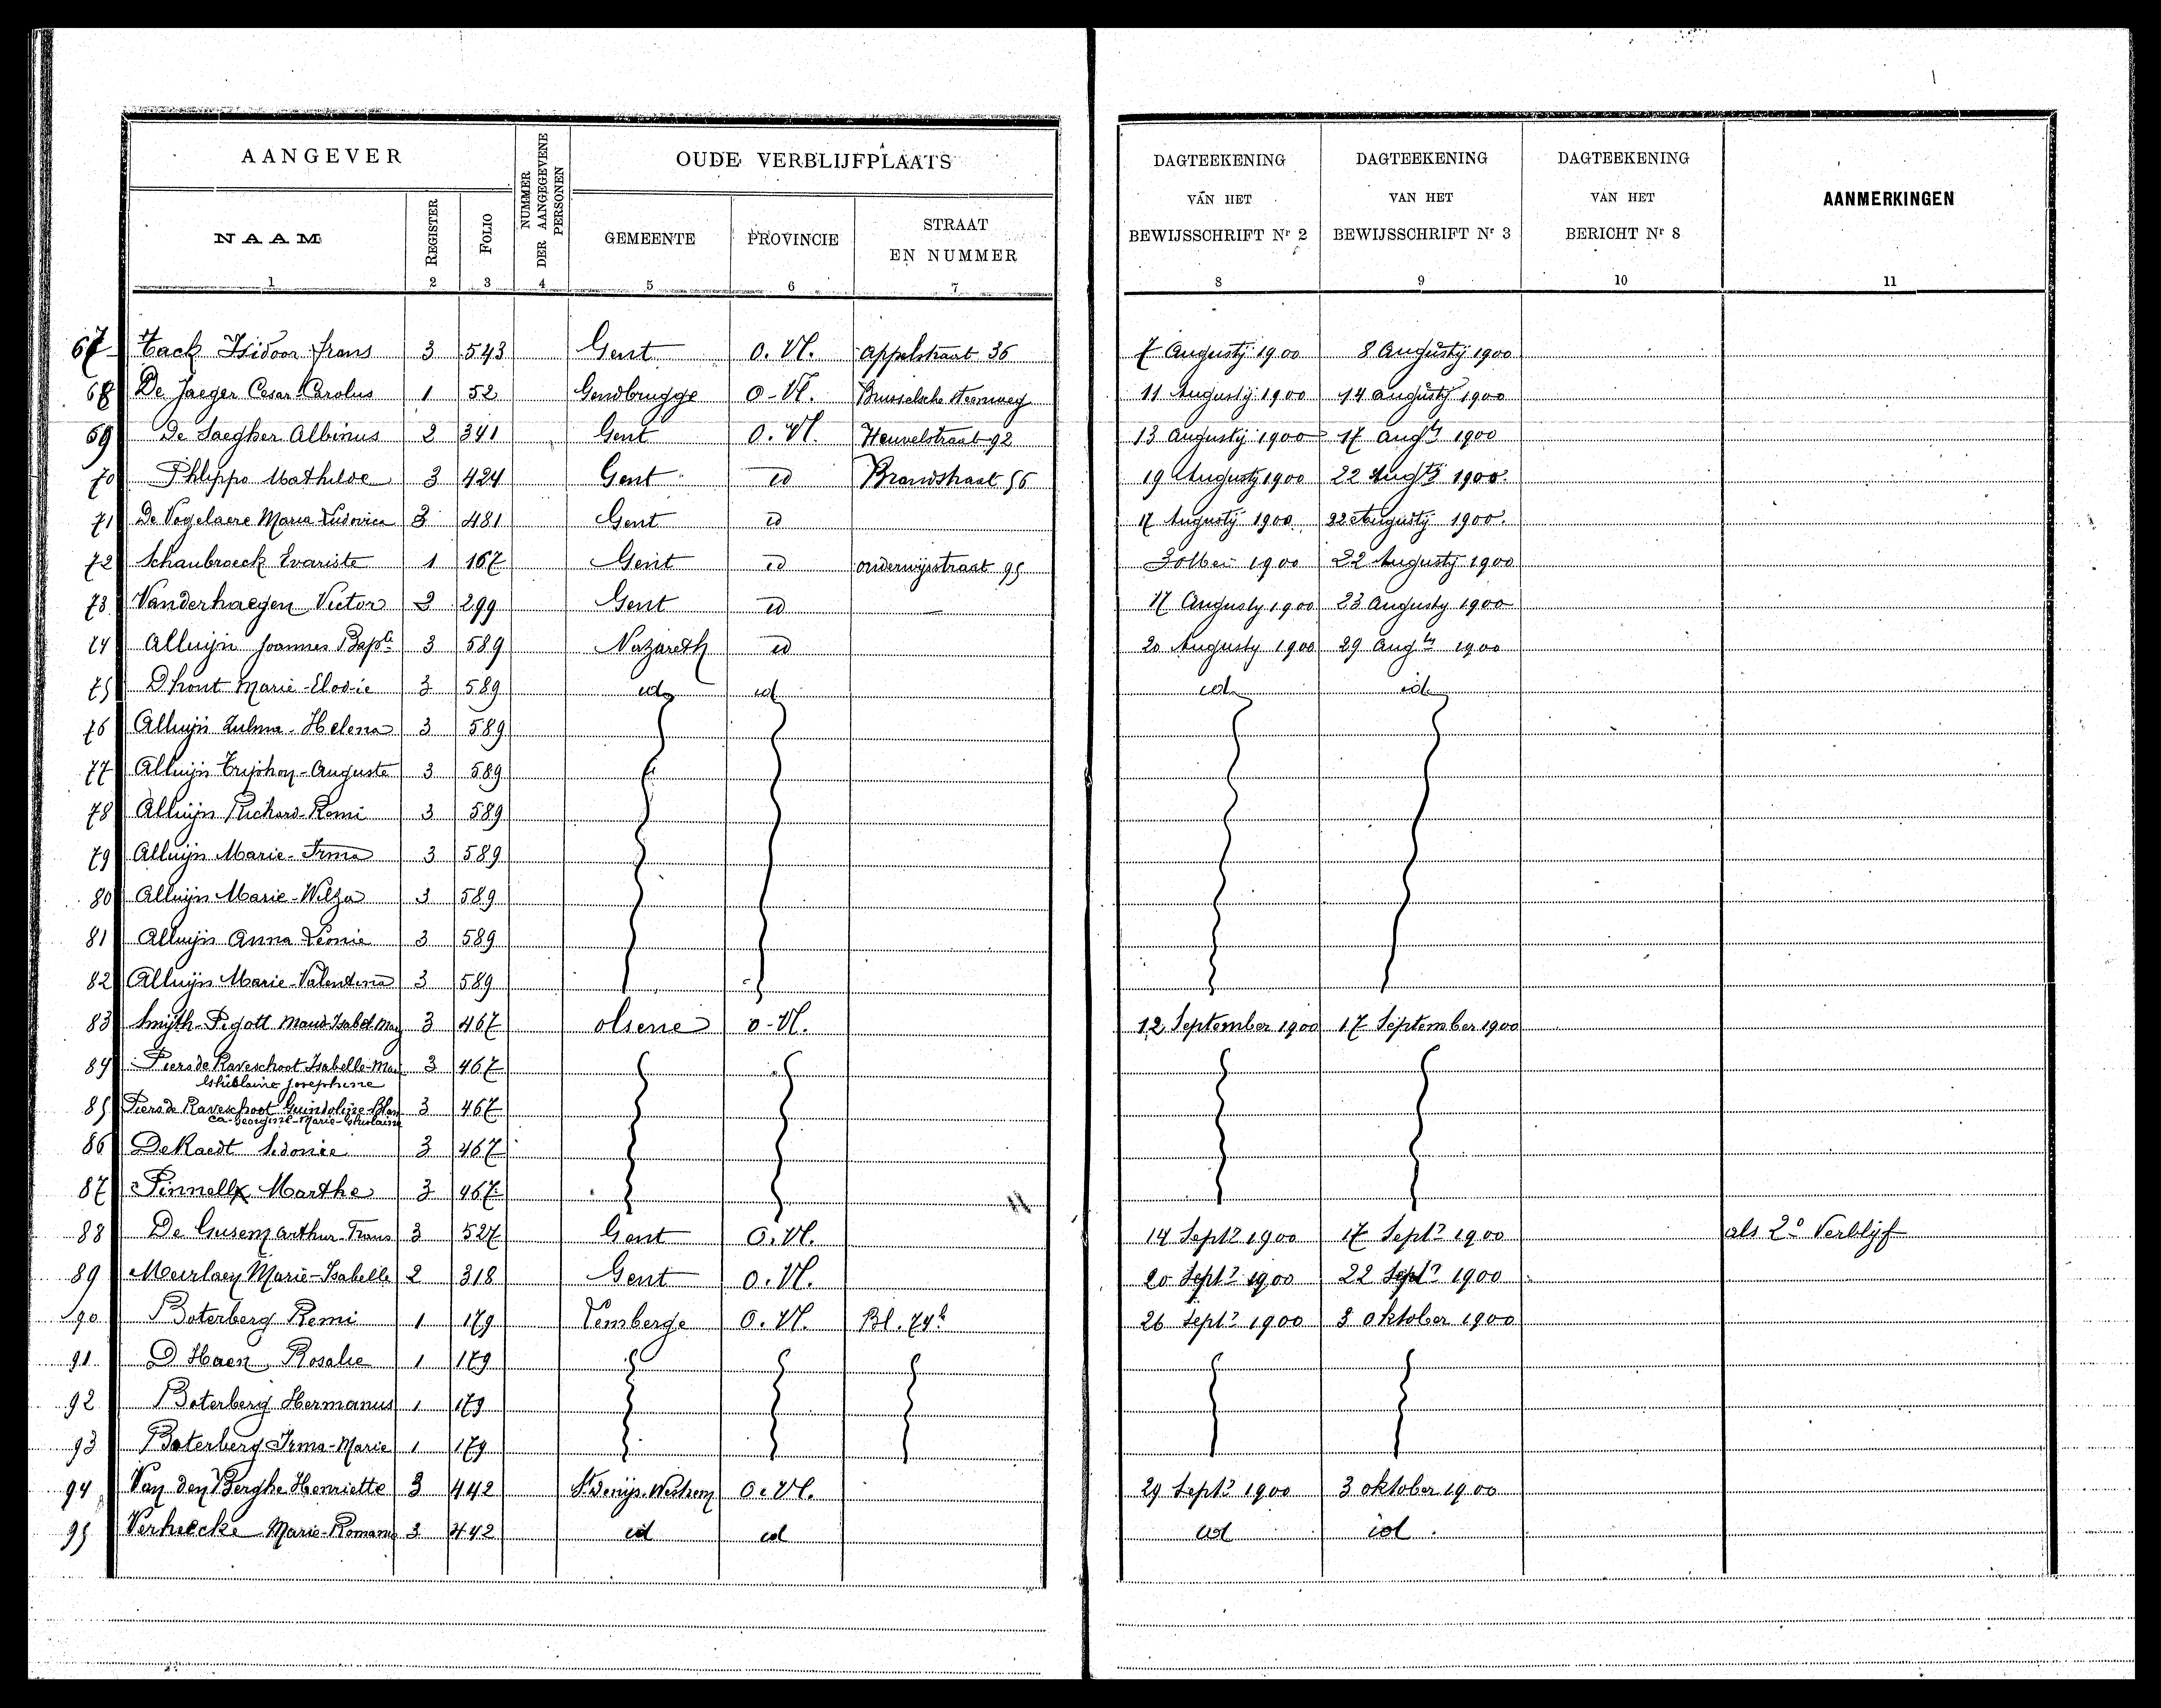 AANGEVER NUMMER DER AANGEGEVENE PERSONEN OUDE VERBLIJFPLAATS DAGTEEKENING VAN HET BEWIJSSCHRIFT Nr 2 DAGTEEKENING VAN HET BEWIJSSCHRIFT Nr 3 DAGTEEKENING VAN HET BERICHT Nr 8 AANMERKINGEN
NAAM REGISTER FOLIO GEMEENTE PROVINCIE STRAAT EN NUMMER
1 2 3 4 5 6 7 8 9 10 11
67 Tack Isidoor frans 3 543 Gent O. Vl. Appelstraat 36 7 Augustij 1900 8 Augustij 1900
68 De Jaeger Cesar-Carolus 1 52 Gendbrugge O-Vl. Brusselsche steenweg 11 Augustij 1900 14 augustij 1900
69 De Saegher Albinus 2 341 Gent O. Vl. Heuvelstraat 92 13 Augustij 1900 17 Augty 1900
70 Phlippo Mathilde 3 424 Gent id Brandstraat 56 19 Augustij 1900 22 Augtij 1900
71 De Vogelaere Maria Ludovica 3 481 Gent id 17 Augustij 1900 22 Augustij 1900.
72 Schaubroeck Evariste 1 167 Gent id onderwijsstraat 95 1900 22 Augustij 1900
73 Vanderhaegen Victor 2 299 Gent id — 17 Augusty 1900 23 Augusty 1900
74 Alluijn Joannes Bapte 3 589 Nazareth id 20 Augusty 1900 29 Augty 1900
75 Dhont Marie-Elodie 3 589 id id id id
76 Alluijn Zulma-Helena 3 589
77 Alluijn Tryphon-Auguste 3 589
78 Alluijn Richard-Remi 3 589
79 Alluijn Marie-Irma 3 589
80 Alluijn Marie-Wilza 3 589
81 Alluijn Anna Leonie 3 589
82 Alluijn Marie-Valentina 3 589
83 Smijth-Pigott Maud-Isabel-May 3 467 Olsene O-Vl. 12 September 1900 17 September 1900
84 Piers de Raveschoot Isabelle-Marie 3 467
Ghislaine Josephine
85 Piers de Raveschoot Guindoline-Blan 3 467
ca-Georgine-Marie-Ghislaine
86 De Raedt Sidonie 3 467
87 Pinnell Marthe 3 467
88 De Gusem Arthur Frans 3 527 Gent O. Vl. 14 Septr 1900 17 Septr 1900 als 2e Verblijf
89 Meirlaen Marie-Isabelle 2 318 Gent O. Vl. 20 Septr 1900 22 Septr 1900
90 Boterberg Remi 1 179 Lemberge O. Vl. Bl. 74 26 Septr 1900 3 Oktober 1900
91 D Haen Rosalie 1 179
92 Boterberg Hermanus 1 179
93 Boterberg Irma-Marie 1 179
94 Van den Berghe Henriette 3 442 St Denijs-Westrem O. Vl. 29 Septr 1900 3 oktober 1900
95 Verheecke Marie-Romanie 3 442 id id id id